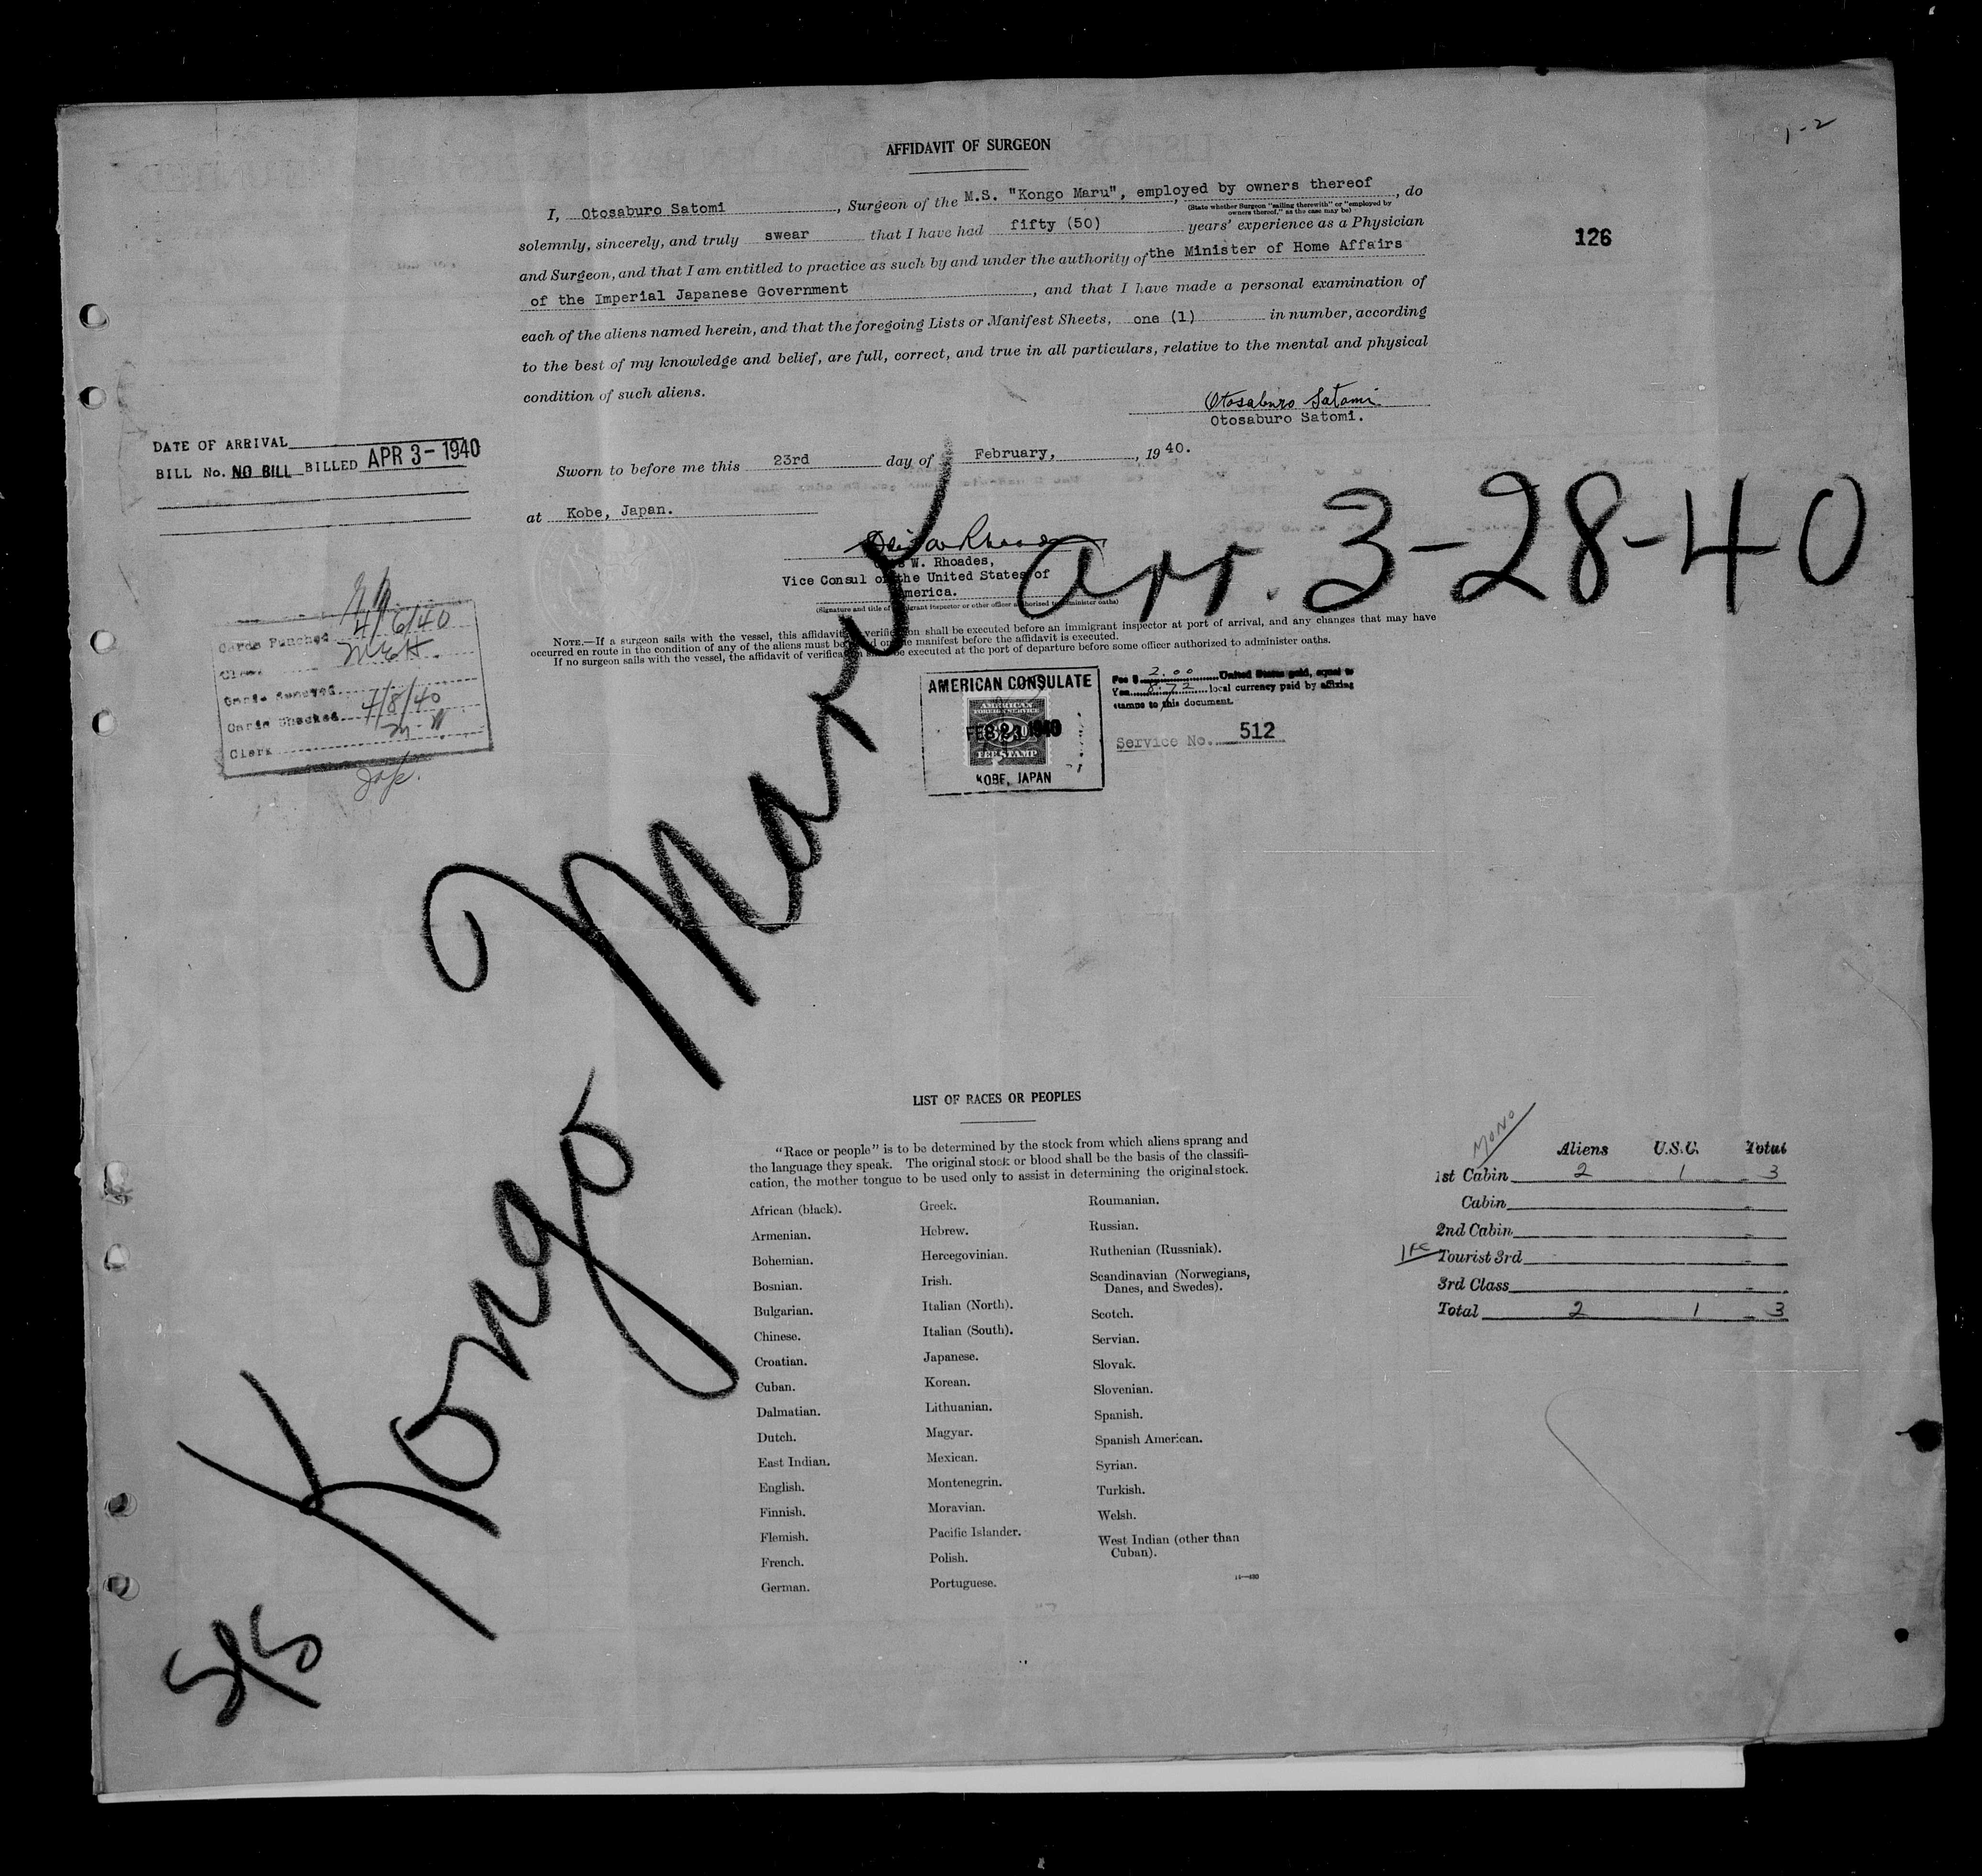 1-2
AFFIDAVIT OF SURGEON
I, Otosaburo Satomi, Surgeon of the M.S. "Kongo Maru", employed by owners thereof, do
(State whether Surgeon "sailing therewith" or "employed by
owners thereof," as the case may be)
solemnly, sincerely, and truly swear that I have had fifty (50) years' experience as a Physician
126
and Surgeon, and that I am entitled to practice as such by and under the authority of the Minister of Home Affairs
of the Imperial Japanese Government, and that I have made a personal examination of
each of the aliens named herein, and that the foregoing Lists or Manifest Sheets, one (1) in number, according
to the best of my knowledge and belief, are full, correct, and true in all particulars, relative to the mental and physical
condition of such aliens.
Otosaburo Satomi
Otosaburo Satomi.
DATE OF ARRIVAL
BILL No. NO BILL BILLED APR 3-1940
Sworn to before me this 23rd day of February, 1940.
at Kobe, Japan.
arr. 3-28-40
W. Rhoades,
Vice Consul of the United States of
America.
(Signature and title of immigrant inspector or other officer authorised to administer oaths)
NOTE.—If a surgeon sails with the vessel, this affidavit of verification shall be executed before an immigrant inspector at port of arrival, and any changes that may have
occurred en route in the condition of any of the aliens must be noted on the manifest before the affidavit is executed.
If no surgeon sails with the vessel, the affidavit of verification shall be executed at the port of departure before some officer authorized to administer oaths.
Cards Punched 4/6/40
Clerk
Cards Checked 4/8/40
Clerk
AMERICAN CONSULATE
AMERICAN
FOREIGN SERVICE
FEB 23 1940
FEE STAMP
KOBE, JAPAN
Fee $ 2.00 United States gold, equal to
Yen 8.72 local currency paid by affixing
stamps to this document.
Service No. 512
S/S Kongo Maru
LIST OF RACES OR PEOPLES
"Race or people" is to be determined by the stock from which aliens sprang and
the language they speak. The original stock or blood shall be the basis of the classifi-
cation, the mother tongue to be used only to assist in determining the original stock.
African (black).
Armenian.
Bohemian.
Bosnian.
Bulgarian.
Chinese.
Croatian.
Cuban.
Dalmatian.
Dutch.
East Indian.
English.
Finnish.
Flemish.
French.
German.
Greek.
Hebrew.
Hercegovinian.
Irish.
Italian (North).
Italian (South).
Japanese.
Korean.
Lithuanian.
Magyar.
Mexican.
Montenegrin.
Moravian.
Pacific Islander.
Polish.
Portuguese.
Roumanian.
Russian.
Ruthenian (Russniak).
Scandinavian (Norwegians,
Danes, and Swedes).
Scotch.
Servian.
Slovak.
Slovenian.
Spanish.
Spanish American.
Syrian.
Turkish.
Welsh.
West Indian (other than
Cuban).
MONO
Aliens U.S.C. Total
1st Cabin 2 1 3
Cabin
2nd Cabin
Tourist 3rd
3rd Class
Total 2 1 3